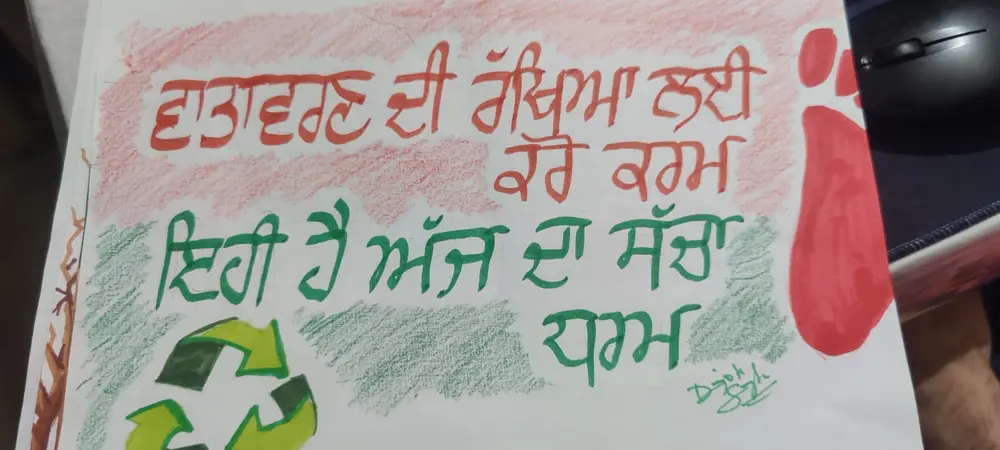 ਵਾਤਾਵਰਣ ਦੀ ਰੱਖਿਆ ਲਈ
ਕਰੋ ਕਰਮ
ਇਹੀ ਹੈ ਅੱਜ ਦਾ ਸੱਚਾ
ਧਰਮ